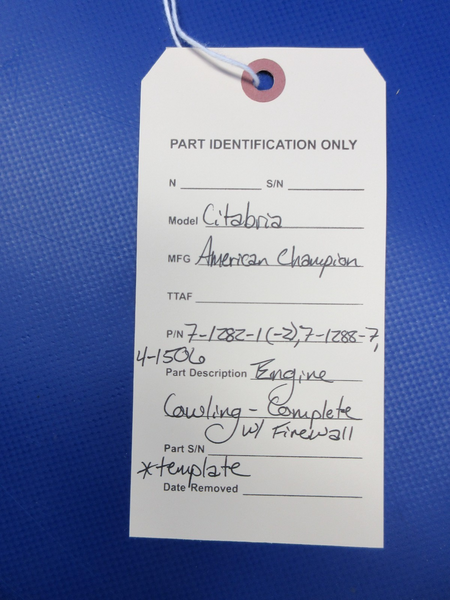 PART IDENTIFICATION ONLY
N S/N
Model Citabria
MFG American Champion
TTAF
P/N 7-1282-1(-2), 7-1288-7,
4-1506
Part Description Engine
Cowling - Complete
w/ Firewall
Part S/N
*template
Date Removed